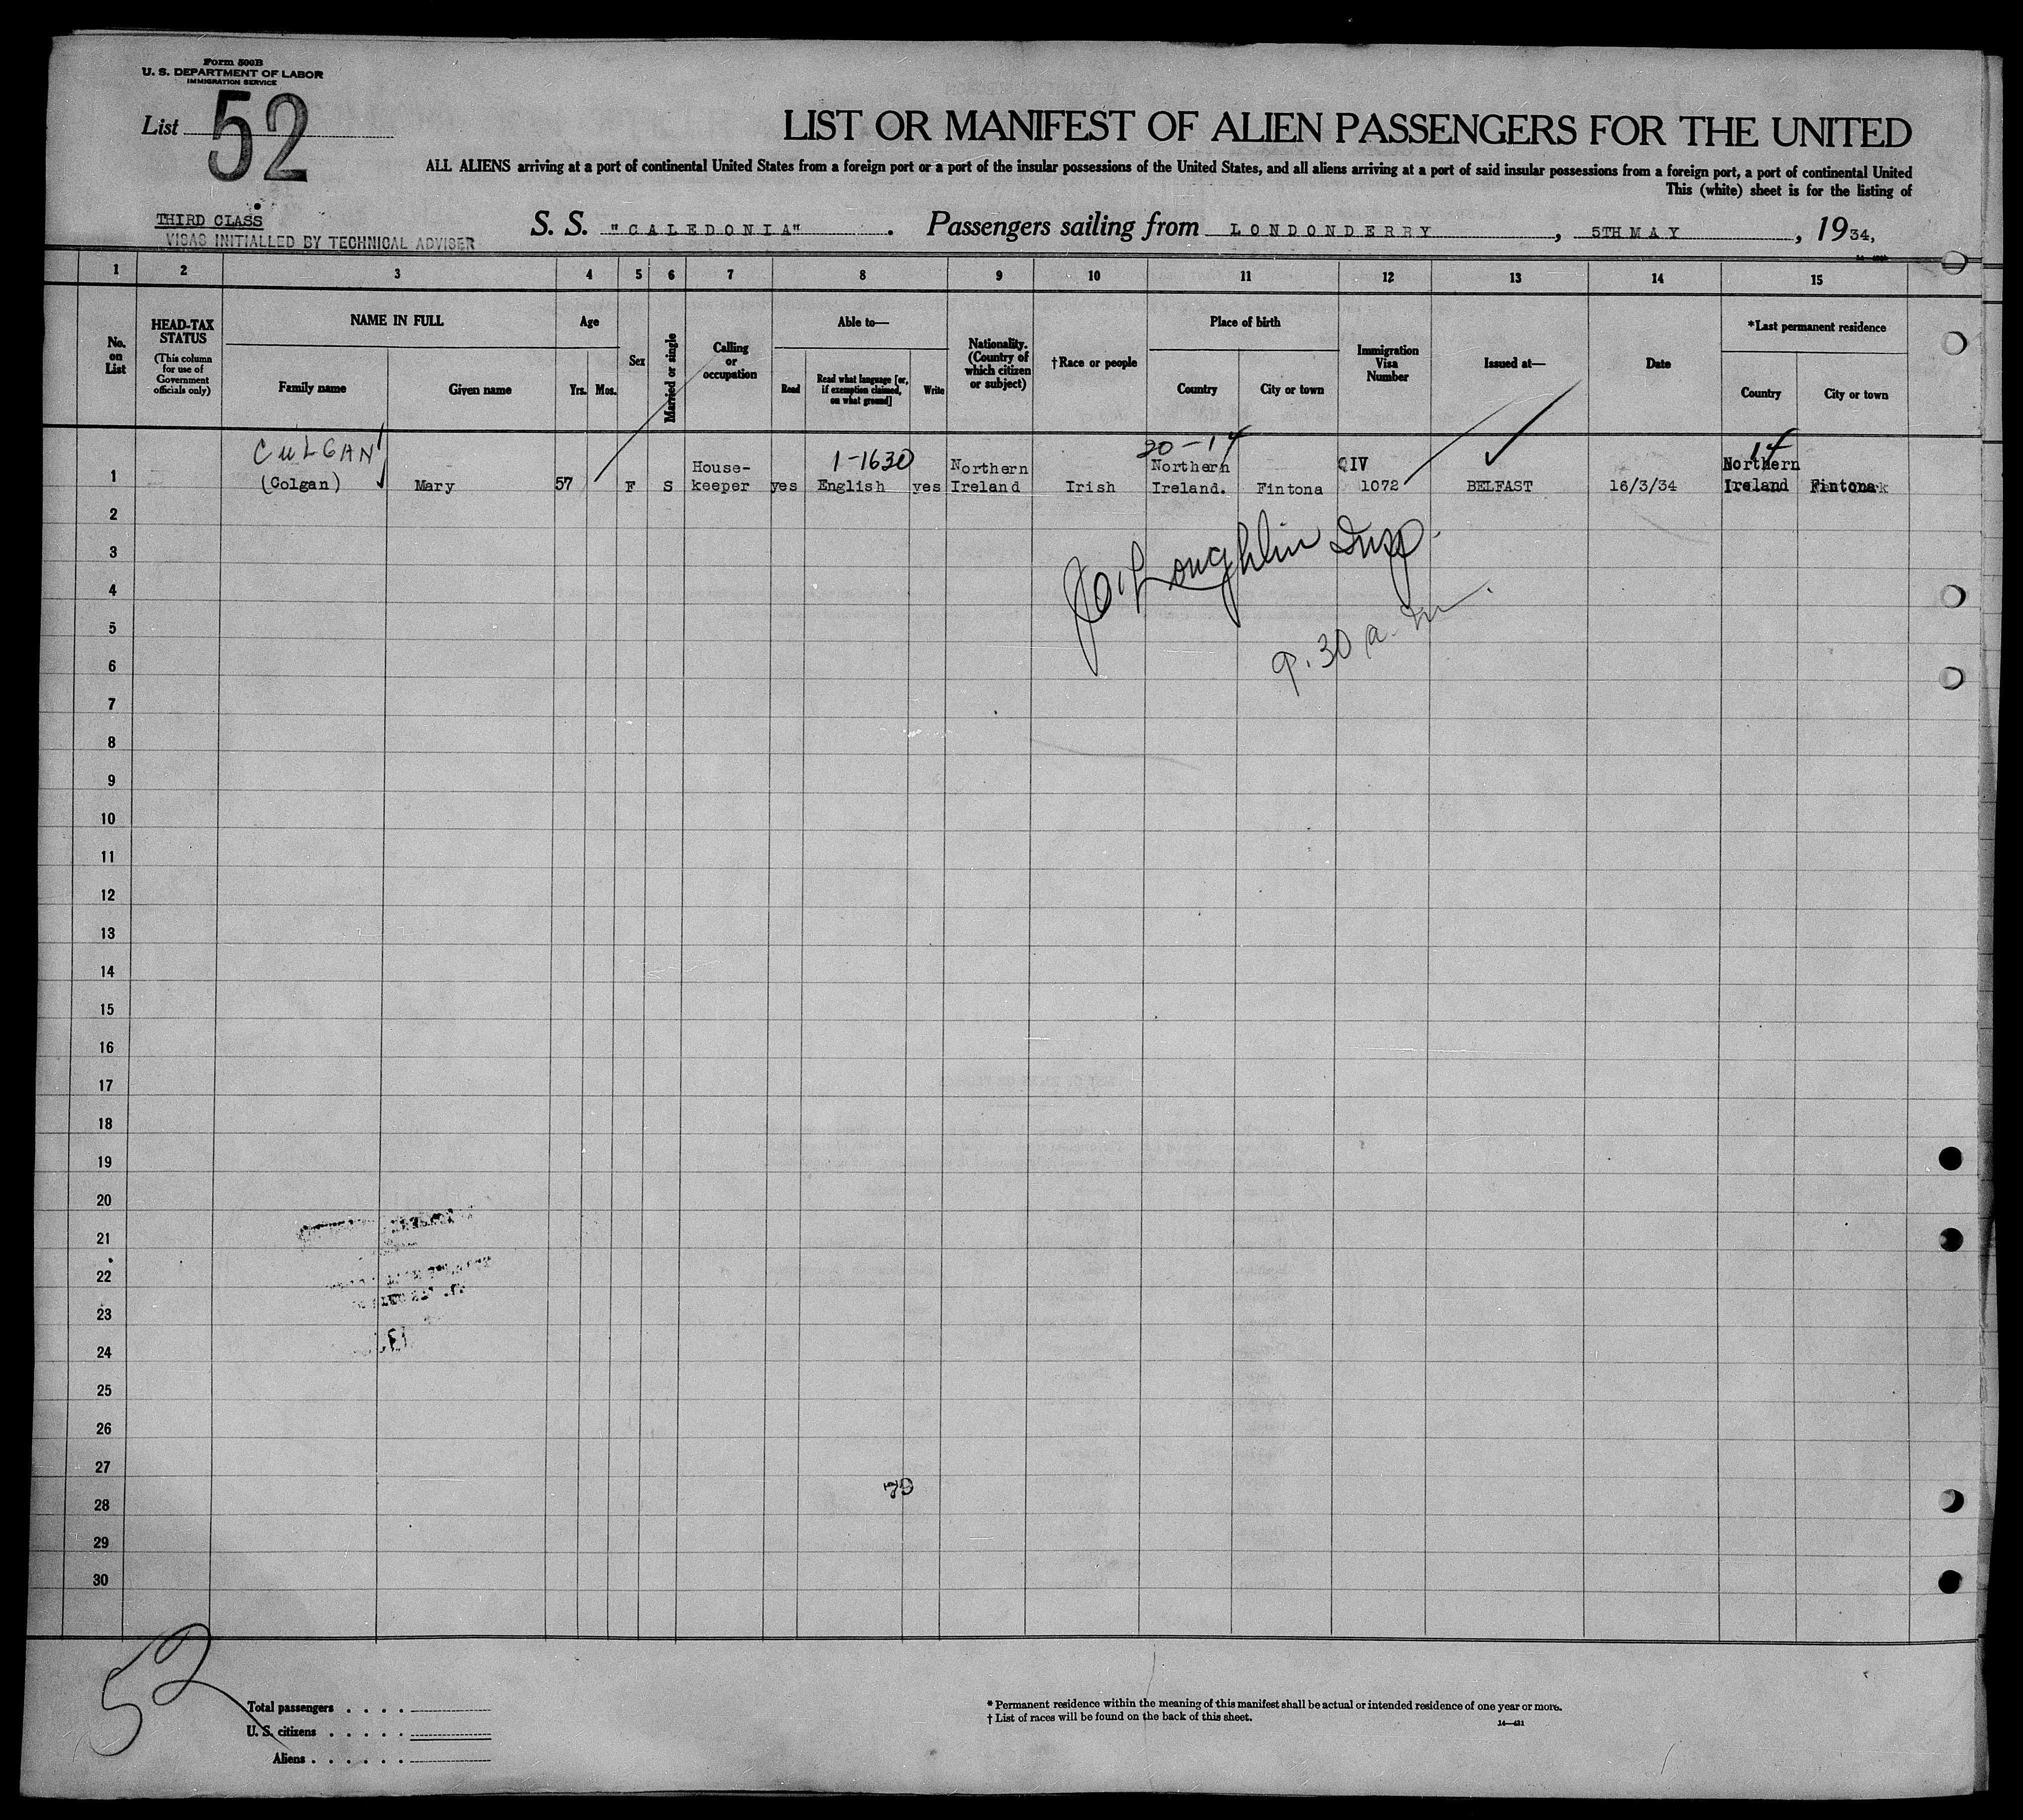 Form 500B
U. S. DEPARTMENT OF LABOR
IMMIGRATION SERVICE
List 52
LIST OR MANIFEST OF ALIEN PASSENGERS FOR THE UNITED
ALL ALIENS arriving at a port of continental United States from a foreign port or a port of the insular possessions of the United States, and all aliens arriving at a port of said insular possessions from a foreign port, a port of continental United
This (white) sheet is for the listing of
THIRD CLASS
VISAS INITIALLED BY TECHNICAL ADVISER
S. S. "CALEDONIA". Passengers sailing from LONDONDERRY, 5TH MAY, 1934,
1 2 3 4 5 6 7 8 9 10 11 12 13 14 15
No. on List
HEAD-TAX STATUS
(This column for use of Government officials only)
NAME IN FULL
Family name
Given name
Age
Yrs. Mos.
Sex
Married or single
Calling or occupation
Able to—
Read
Read what language [or, if exemption claimed, on what ground]
Write
Nationality. (Country of which citizen or subject)
†Race or people
Place of birth
Country
City or town
Immigration Visa Number
Issued at—
Date
*Last permanent residence
Country
City or town
CULGAN 1-1630 20-14 14
1 (Colgan) Mary 57 F S House-keeper yes English yes Northern Ireland Irish Northern Ireland. Fintona QIV 1072 BELFAST 16/3/34 Northern Ireland Fintona
2
3
J O'Loughlin Insp.
4
5
9.30 a.m.
6
7
8
9
10
11
12
13
14
15
16
17
18
19
20
21
22
23
24
25
26
27
28
29
30
52
Total passengers
U. S. citizens
Aliens
* Permanent residence within the meaning of this manifest shall be actual or intended residence of one year or more.
† List of races will be found on the back of this sheet.
14—421